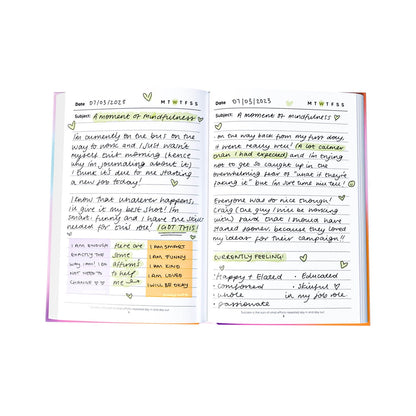 Date 07/03/2023 M T W T F S S
Subject: A moment of mindfulness
I'm currently on the bus on the
way to work and I just wasn't
myself this morning (hence
why I'm journaling about it)
I think it's due to me starting
a new job today!
I know that whatever happens,
I'll give it my best shot! I'm
smart, funny and I have the skills
needed for this role! I GOT THIS!
I AM ENOUGH
EXACTLY THE
WAY I AM! I DO
NOT NEED TO
CHANGE
Here are
some
affirms
to help
me
I AM SMART
I AM FUNNY
I AM KIND
I AM LOVED
I WILL BE OKAY
Date 07/03/2023 M T W T F S S
Subject: A moment of mindfulness
on the way back from my first day,
it went really well! (A lot calmer
than I had expected) and I'm trying
not to get so caught up in the
overwhelming fear of "what if they're
faking it" but I'm sure time will tell!
Everyone was so nice though!
Craig (the guy I will be working
with) said that I should have
started sooner, because they loved
my ideas for their campaign!!
CURRENTLY FEELING!
• Happy + Elated
• composed
• whole
• passionate
• Educated
• Skillful
in my job role
Success is the sum of small efforts repeated day in and day out